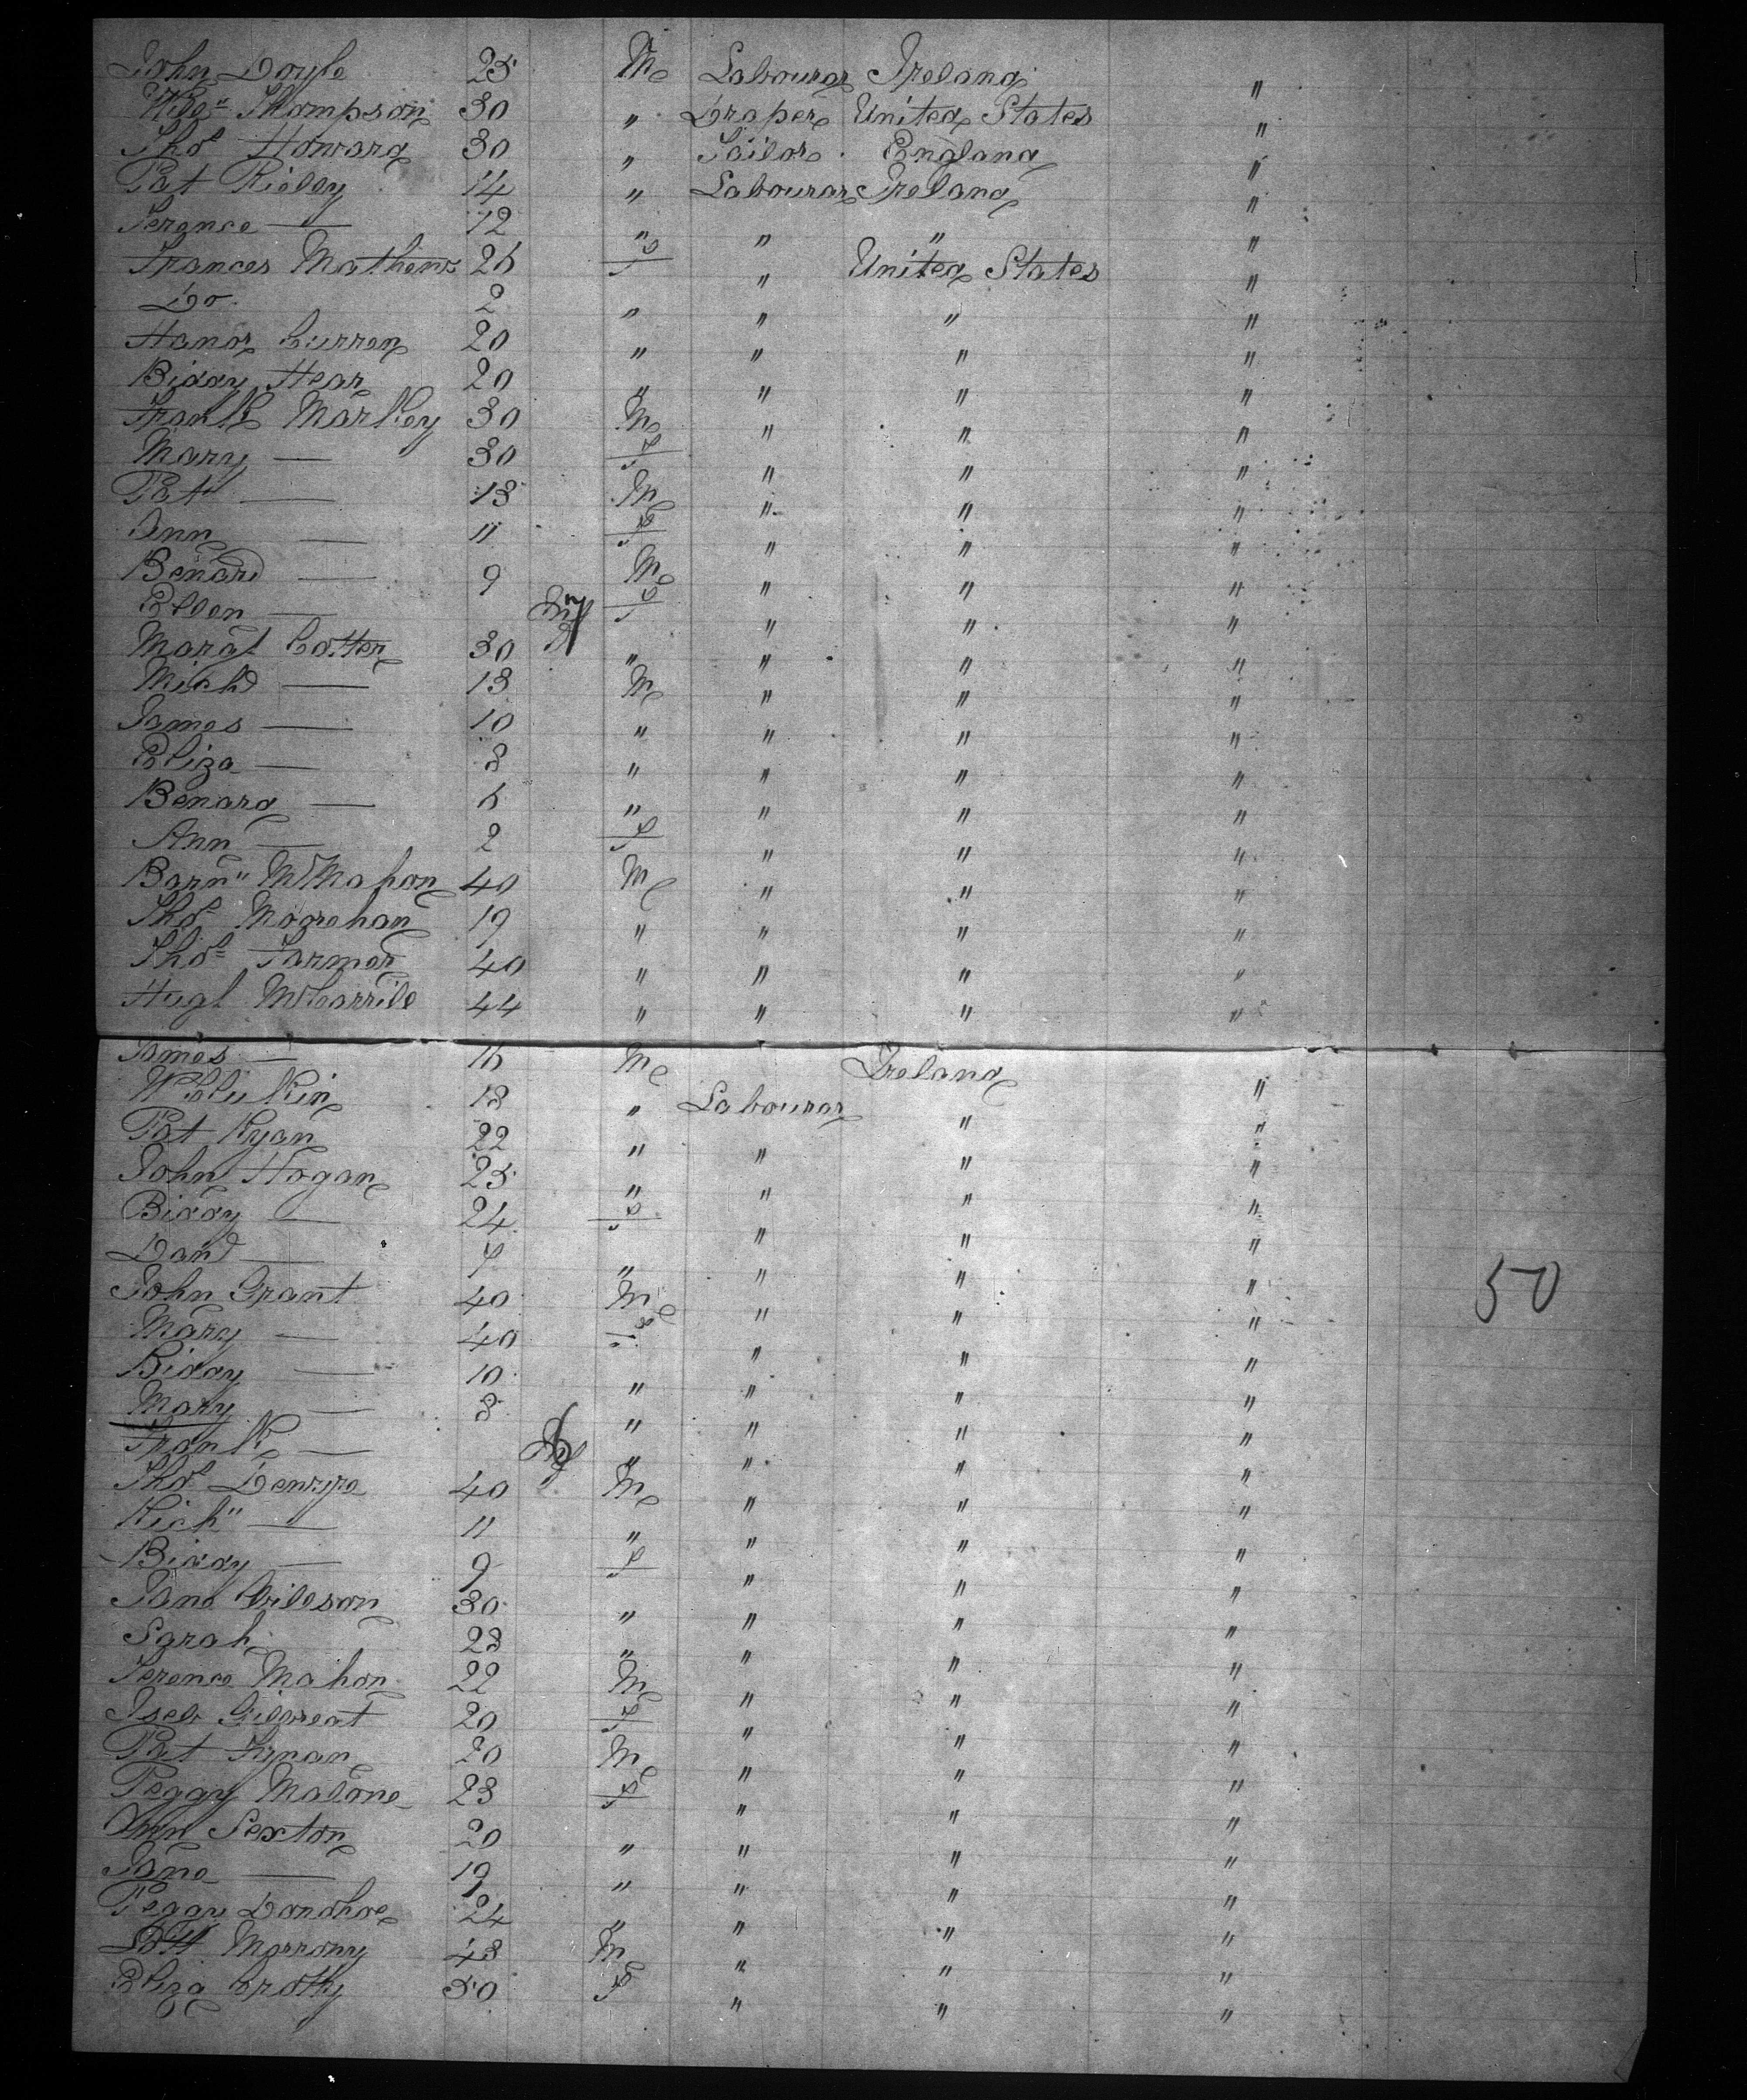 John Doyle 25 M Labourar Ireland "
Will" Thompson 30 " Draper United States "
Thos Howard 30 " Tailor England "
Pat Rieley 14 " Labourar Ireland "
Terence — 12 " " " "
Frances Mathews 26 F " United States "
Do. 2 " " " "
Hanor Curren 20 " " " "
Biddy Hear 20 " " " "
Frank Markey 30 M " " "
Mary — 30 F " " "
Pat — 13 M " " "
Ann — 11 F " " "
Benard — 9 M " " "
Ellen — Inf F " " "
Margt Cotter 30 " " " "
Michd — 13 M " " "
James — 10 " " " "
Eliza — 8 " " " "
Benard — 6 " " " "
Ann — 2 F " " "
Barn" McMahon 40 M " " "
Thos Moorehan 19 " " " "
Thos Farmer 40 " " " "
Hugh McCarrile 44 " " " "
James — 16 M Ireland "
W Clukin 18 " Labourar " "
Pat Ryan 22 " " " "
John Hogan 25 " " " "
Biddy — 24 F " " "
Dand — 4 " " " "
John Grant 40 M " " "
Mary — 40 F " " "
Biddy — 10 " " " "
Mary — 8 " " " "
Frank — Inf " " " "
Thos 40 M " " "
Rich" — 11 " " " "
Biddy — 9 F " " "
Jane Gibson 30 " " " "
Sarah 28 " " " "
Terence Mahon 22 M " " "
Iseb Gilgreat 20 F " " "
Pat 20 M " " "
Peggy Malone 23 F " " "
Ann Sexton 20 " " " "
Jane — 19 " " " "
Peggy Donohoe 24 " " " "
Morrony 43 M " " "
Eliza Crothy 50 F " " "
50